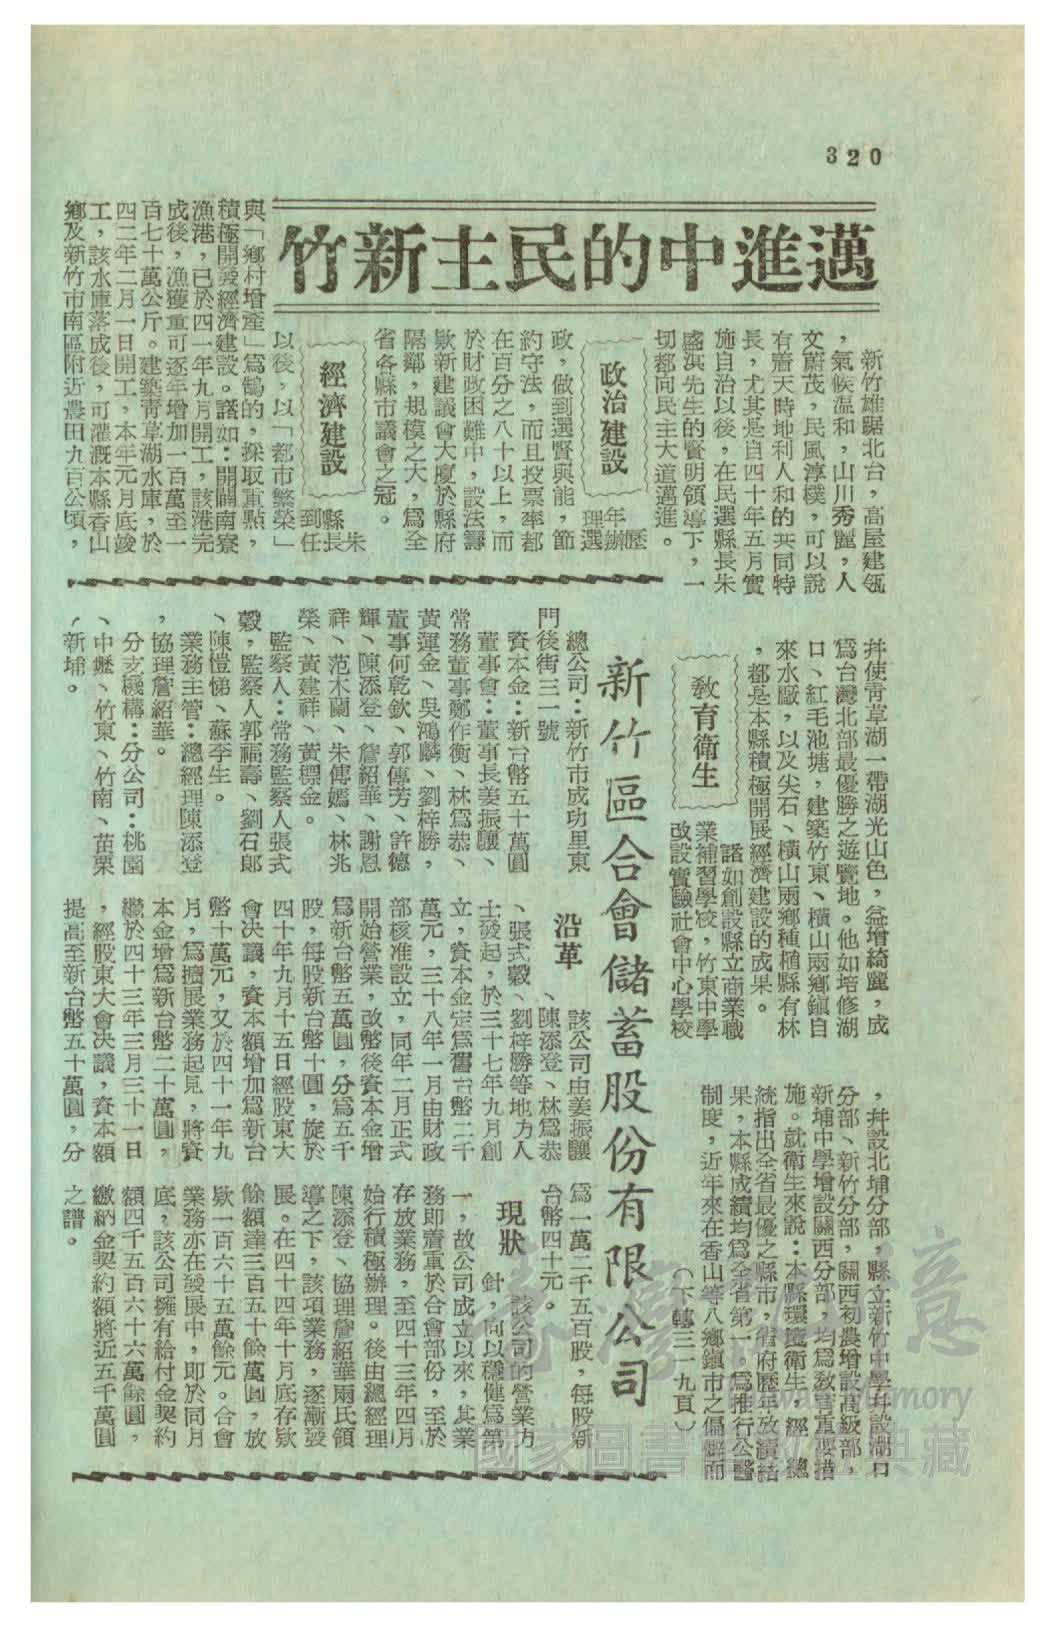 320
邁進中的民主新竹
新竹雄踞北台，高屋建瓴
，氣候温和，山川秀麗，人
文蔚茂，民風淳樸，可以說
有着天時地利人和的共同特
長，尤其是自四十年五月實
施自治以後，在民選縣長朱
盛淇先生的賢明領導下，一
切都向民主大道邁進。
政治建設
歷年辦理選
政，做到選賢與能，節
約守法，而且投票率都
在百分之八十以上，而
於財政困難中，設法籌
欵新建議會大廈於縣府
隔鄰，規模之大，爲全
省各縣市議會之冠。
經濟建設
朱縣長到任
以後，以「都市繁榮」
與「鄉村增產」爲鵠的，採取重點，
積極開發經濟建設。諸如：開闢南寮
漁港，已於四一年九月開工，該港完
成後，漁獲量可逐年增加一百萬至一
百七十萬公斤。建築靑草湖水庫，於
四二年二月一日開工，本年元月底竣
工，該水庫落成後，可灌漑本縣香山
鄉及新竹市南區附近農田九百公頃，
并使靑草湖一帶湖光山色，益增綺麗，成
爲台灣北部最優勝之遊覽地。他如培修湖
口、紅毛池塘，建築竹東、橫山兩鄉鎮自
來水廠，以及尖石、橫山兩鄉種植縣有林
，都是本縣積極開展經濟建設的成果。
教育衛生
諸如創設縣立商業職
業補習學校，竹東中學
改設實驗社會中心學校
，幷設北埔分部，縣立新竹中學幷設湖口
分部、新竹分部，關西初農增設高級部，
新埔中學增設關西分部，均爲教育重要措
施。就衛生來說：本縣環境衛生，經　總
統指出全省最優之縣市，省府歷年攷績結
果，本縣成績均爲全省第一。爲推行公醫
制度，近年來在香山等八鄉鎮市之偏僻而
（下轉三一九頁）
新竹區合會儲蓄股份有限公司
總公司：新竹市成功里東
門後街三一號
資本金：新台幣五十萬圓
董事會：董事長姜振驤、
常務董事鄭作衡、林爲恭、
黃運金、吳鴻麟、劉梓勝，
董事何乾欽、郭傳芳、許德
輝、陳添登、詹紹華、謝恩
祥、范木蘭、朱傳嫣、林兆
榮、黃建祥、黃標金。
監察人：常務監察人張式
穀，監察人郭福壽、劉石郎
、陳愷悌、蘇李生。
業務主管：總經理陳添登
，協理詹紹華。
分支機構：分公司：桃園
、中壢、竹東、竹南、苗栗
、新埔。
沿革
該公司由姜振驤
、陳添登、林爲恭
、張式穀、劉梓勝等地方人
士發起，於三十七年九月創
立，資本金定爲舊台幣二千
萬元，三十八年一月由財政
部核准設立，同年二月正式
開始營業，改幣後資本金增
爲新台幣五萬圓，分爲五千
股，每股新台幣十圓，旋於
四十年九月十五日經股東大
會決議，資本額增加爲新台
幣十萬元，又於四十一年九
月，爲擴展業務起見，將資
本金增爲新台幣二十萬圓，
繼於四十三年三月三十一日
，經股東大會決議，資本額
提高至新台幣五十萬圓，分
爲一萬二千五百股，每股新
台幣四十元。
現狀
該公司的營業方
針，向以穩健爲第
一，故公司成立以來，其業
務即着重於合會部份，至於
存放業務，至四十三年四月
始行積極辦理。後由總經理
陳添登、協理詹紹華兩氏領
導之下，該項業務，逐漸發
展。在四十四年十月底存欵
餘額達三百五十餘萬圓，放
欵一百六十五萬餘元。合會
業務亦在發展中，即於同月
底，該公司擁有給付金契約
額四千五百六十六萬餘圓，
繳納金契約額將近五千萬圓
之譜。
臺灣記憶
Taiwan Memory
國家圖書館數位典藏